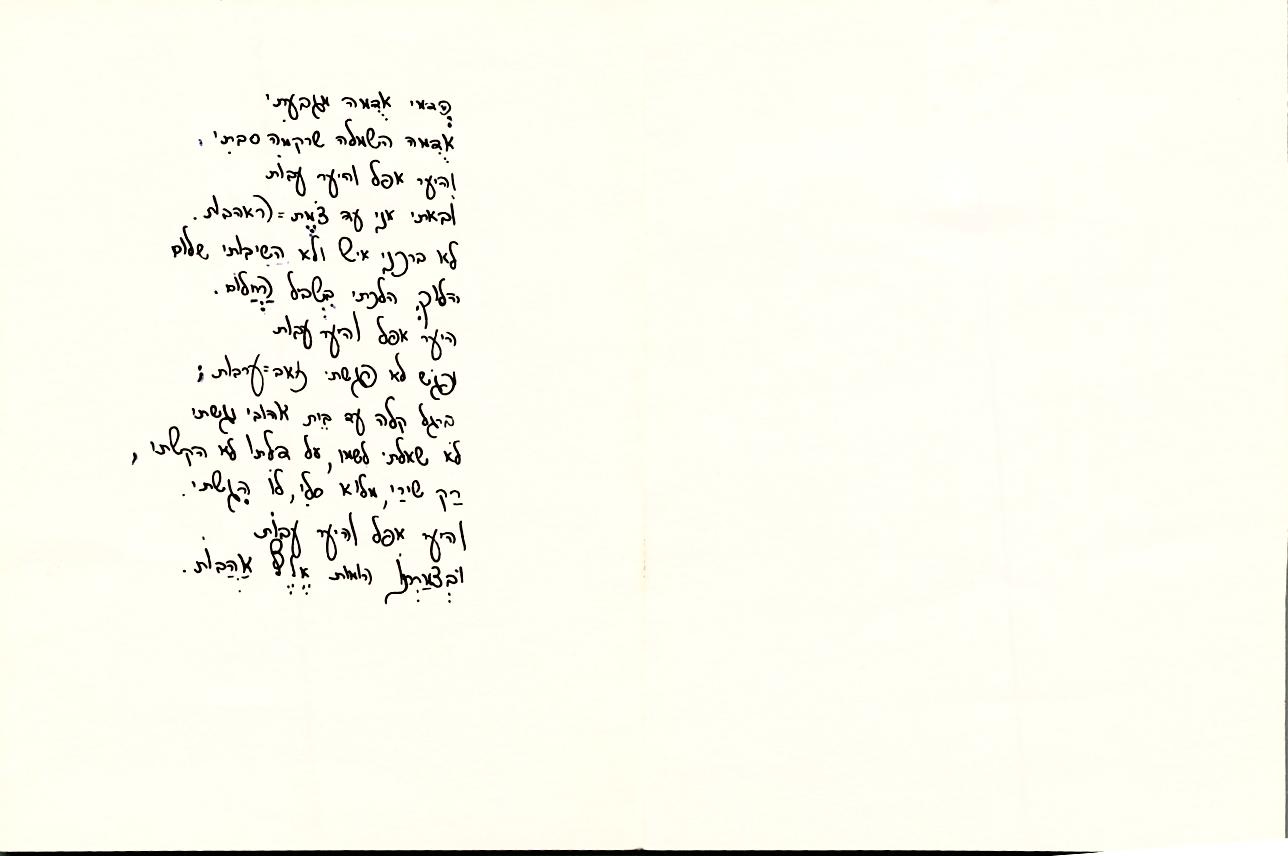 כדמי אֲדֻמה מגבעתי
אֲדֻמה השמלה שרקמה סבתי,
והיער אפל והיער עבות
ובאתי אני עד צֹמֶת=האהבות.
לא ברכני איש ולא השיבותי שלום
הלוֹךְ הלכתי בִּשְׁביל הַחֲלום.
היער אפל והיער עבות
ופגֹש לא פגשתי זאב=ערבות;
ברגל קלה עד בֵּית אהובי נגשתי
לא שאלתי לשמו, על דלתו לא הקשתי,
רַק שירַי, מלוא סלִי, לוֹ הִגשתי.
והיער אפל והיער עבוֹת
וּבְצמַרְתו הומות אֶלֶף אַהֲבוֹת.